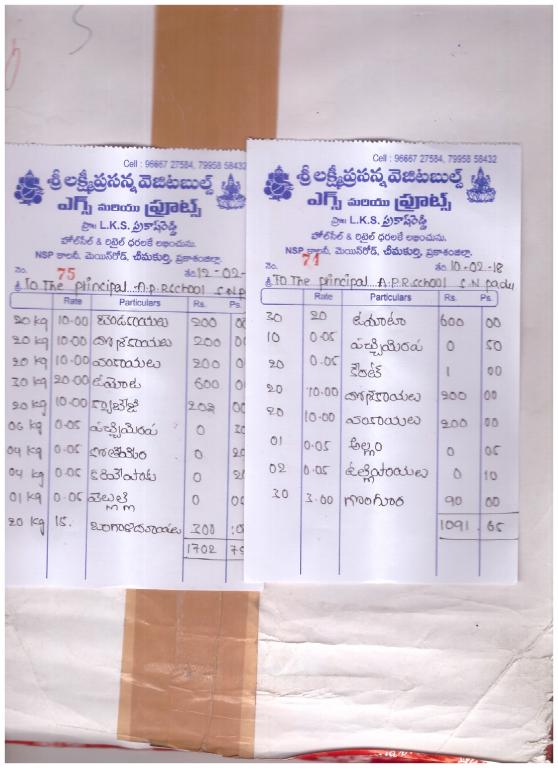 Cell : 96667 27584, 79958 58432
శ్రీ లక్ష్మీప్రసన్న వెజిటబుల్స్
ఎగ్స్ మరియు ఫ్రూట్స్
ప్రొ॥ L.K.S. ప్రకాష్‌రెడ్డి
హోల్‌సేల్ & రిటైల్ ధరలకే లభించును.
NSP కాలనీ, మెయిన్‌రోడ్, చీమకుర్తి, ప్రకాశంజిల్లా.
నెం. 75 తం: 12-02-
శ్రీ To The principal A.P.R School S.N p
Rate Particulars Rs. Ps.
20 kg 10-00 200 00
20 kg 10-00 దోసకాయలు 200 00
20 kg 10-00 వంకాయలు 200 0
30 kg 20-00 టమోట 600 0
20 kg 10-00 క్యాబేజి 202 00
06 kg 0-05 పచ్చిమిరప 0 30
04 kg 0-05 0 20
04 kg 0-05 కరివేపాకు 0 20
01 kg 0-05 వెల్లుల్లి 0 0
20 kg 15. బంగాళదుంపలు 300 :0
1702 75
Cell : 96667 27584, 79958 58432
శ్రీ లక్ష్మీప్రసన్న వెజిటబుల్స్
ఎగ్స్ మరియు ఫ్రూట్స్
ప్రొ॥ L.K.S. ప్రకాష్‌రెడ్డి
హోల్‌సేల్ & రిటైల్ ధరలకే లభించును.
NSP కాలనీ, మెయిన్‌రోడ్, చీమకుర్తి, ప్రకాశంజిల్లా.
నెం. 71 తం: 10-02-18
శ్రీ To The principal A.P.R School S.N padu
Rate Particulars Rs. Ps.
30 20 టమాటా 600 00
10 0.05 పచ్చిమిరప 0 50
20 0.05 కేరట్ 1 00
20 10.00 దోసకాయలు 200 00
20 10.00 వంకాయలు 200 00
01 0.05 అల్లం 0 05
02 0.05 ఉల్లిపాయలు 0 10
30 3.00 గోంగూర 90 00
1091.65